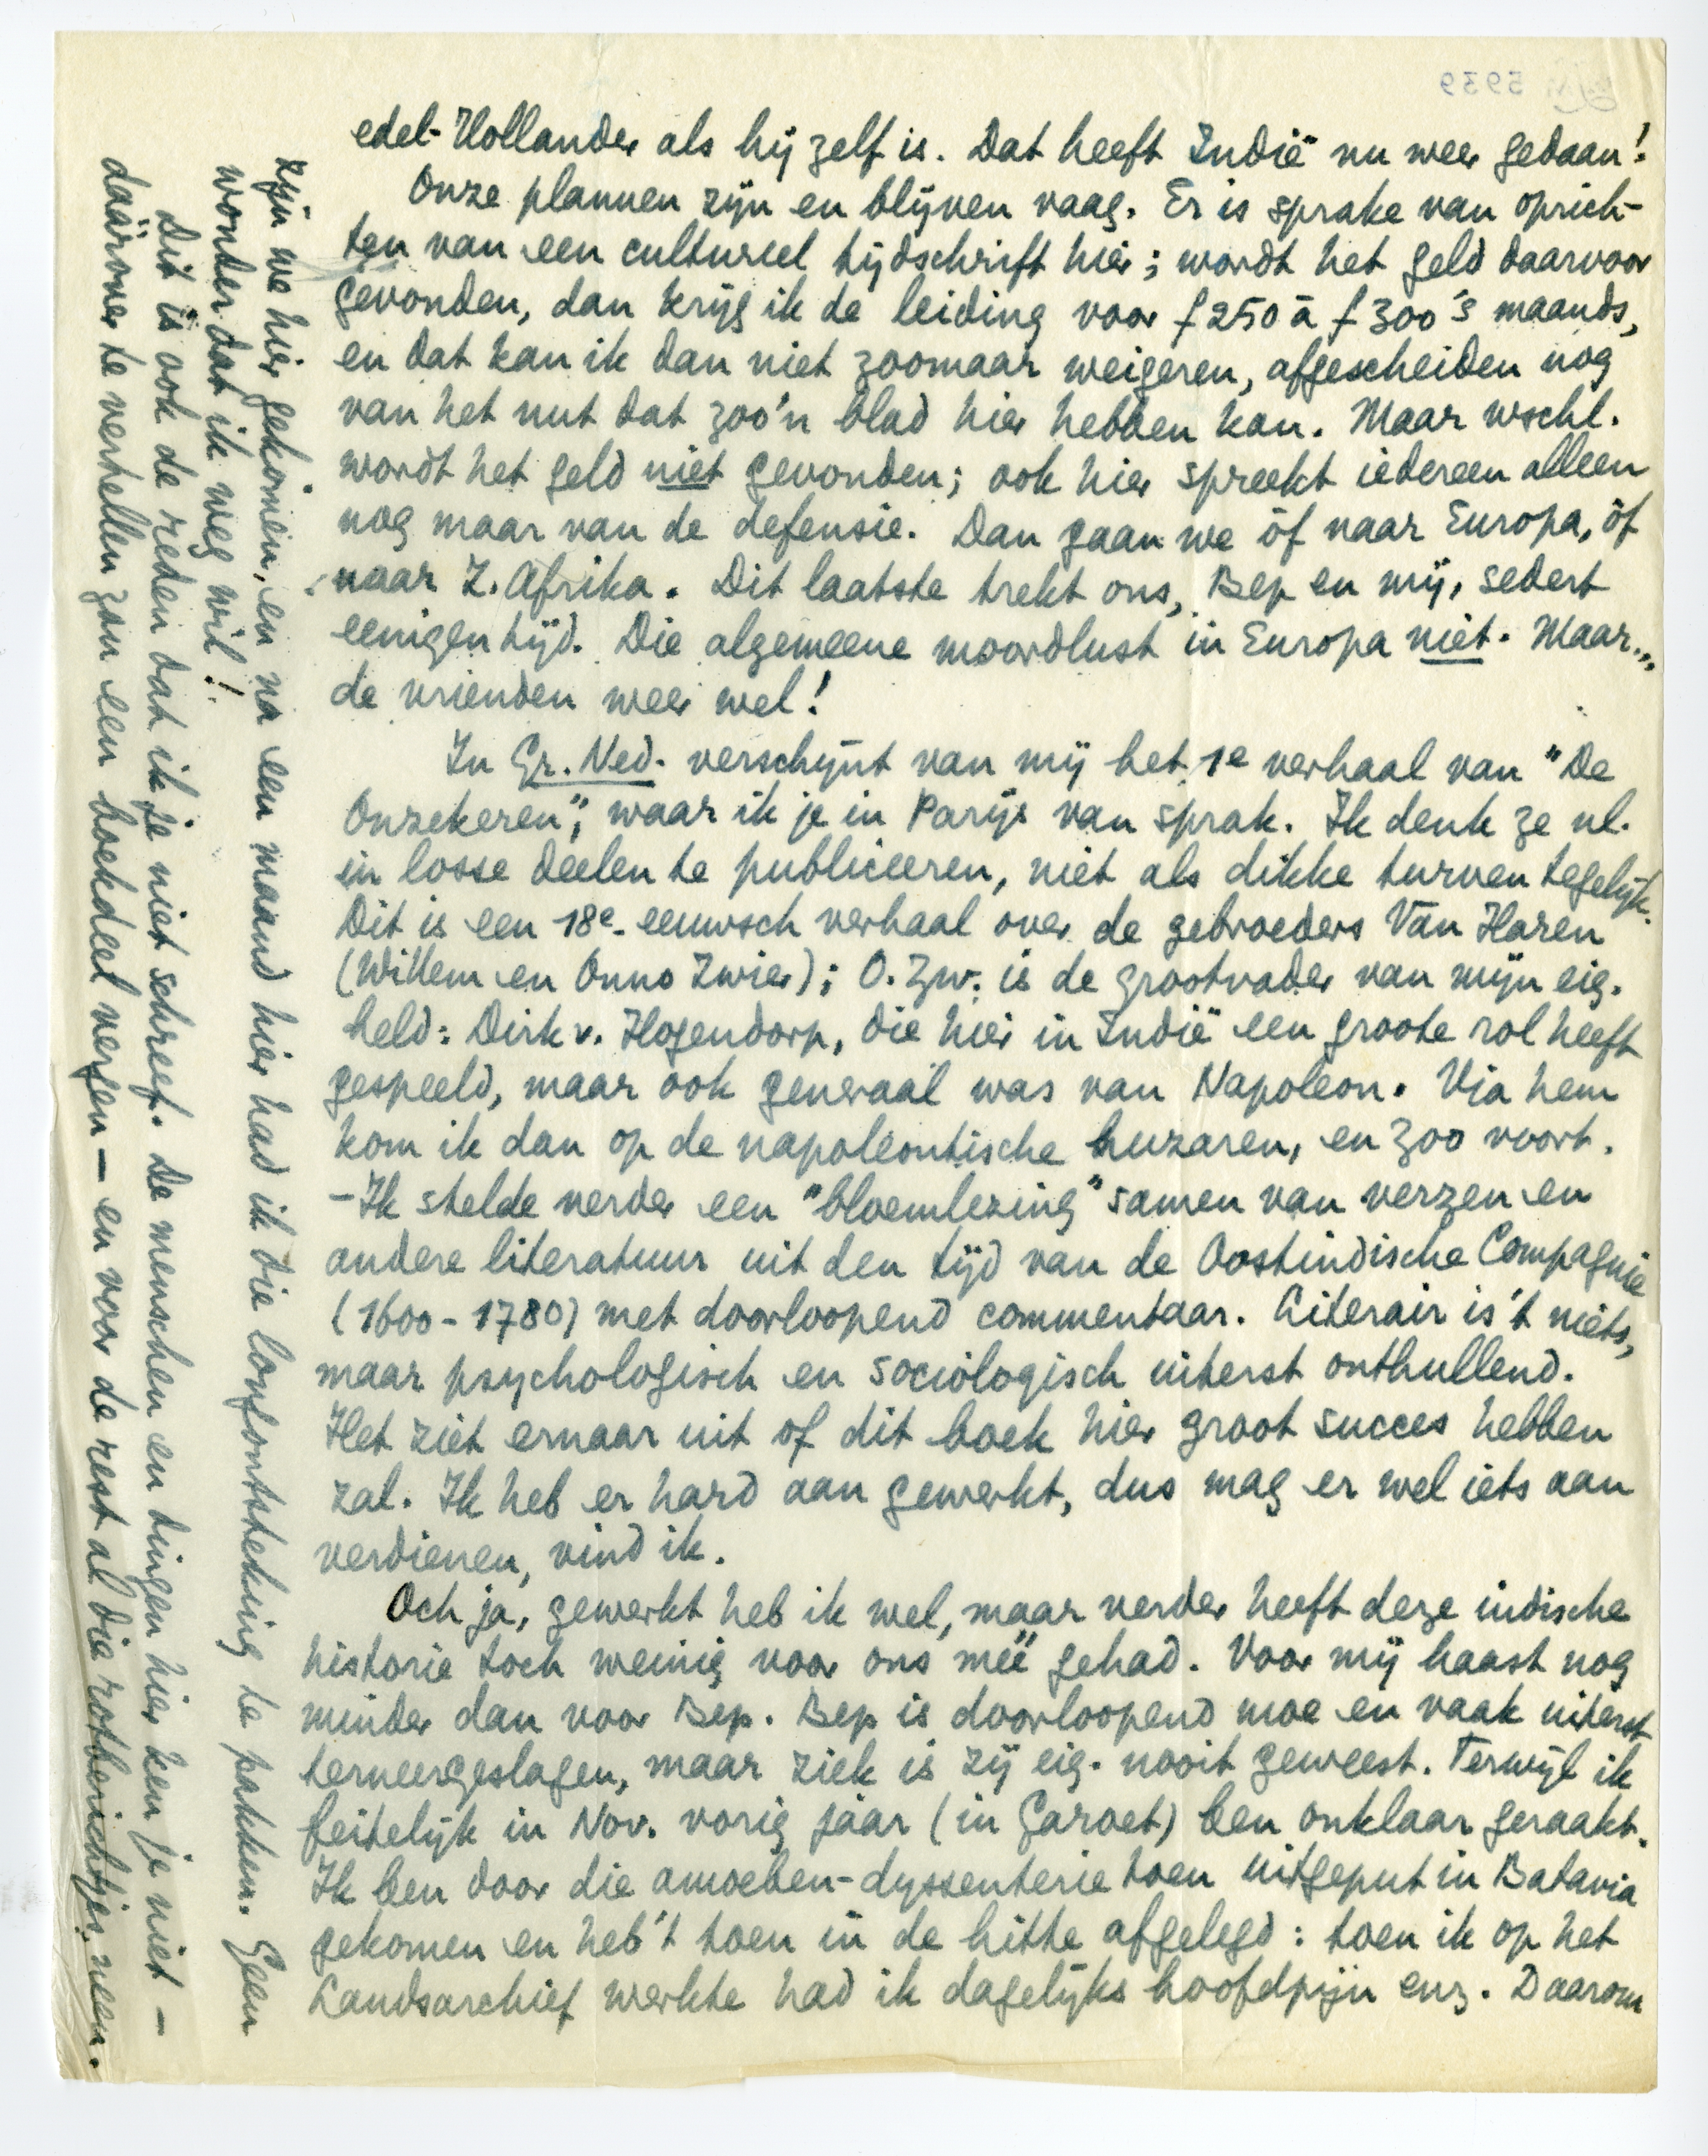 edel-Hollander als hij zelf is. Dat heeft Indië nu weer gedaan!
Onze plannen zijn en blijven vaag. Er is sprake van oprich-
ten van een cultureel tijdschrift hier; wordt het geld daarvoor
gevonden, dan krijg ik de leiding voor f 250 à f 300 's maands,
en dat kan ik dan niet zoomaar weigeren, afgescheiden nog
van het nut dat zoo'n blad hier hebben kan. Maar wschl.
wordt het geld niet gevonden; ook hier spreekt iedereen alleen
nog maar van de defensie. Dan gaan we òf naar Europa, òf
naar Z. Afrika. Dit laatste trekt ons, Bep en mij, sedert
eenigen tijd. Die algemeene moordlust in Europa niet. Maar...
de vrienden weer wel!
In Gr. Ned. verschijnt van mij het 1e verhaal van "De
Onzekeren", waar ik je in Parijs van sprak. Ik denk ze nl.
in losse deelen te publiceeren, niet als dikke turven tegelijk.
Dit is een 18e-eeuwsch verhaal over de gebroeders Van Haren
(Willem en Onno Zwier); O. Zw. is de grootvader van mijn eig.
held: Dirk v. Hogendorp, die hier in Indië een groote rol heeft
gespeeld, maar ook generaal was van Napoleon. Via hem
kom ik dan op de napoleontische huzaren, en zoo voort.
- Ik stelde verder een "bloemlezing" samen van verzen en
andere literatuur uit den tijd van de Oostindische Compagnie
(1600-1780) met doorloopend commentaar. Literair is 't niets,
maar psychologisch en sociologisch uiterst onthullend.
Het ziet ernaar uit of dit boek hier groot succes hebben
zal. Ik heb er hard aan gewerkt, dus mag er wel iets aan
verdienen, vind ik.
Och ja, gewerkt heb ik wel, maar verder heeft deze indische
historie toch weinig voor ons meë gehad. Voor mij haast nog
minder dan voor Bep. Bep is doorloopend moe en vaak uiterst
terneergeslagen, maar ziek is zij eig. nooit geweest. Terwijl ik
feitelijk in Nov. vorig jaar (in Garoet) ben onklaar geraakt.
Ik ben door die amoeben-dyssenterie toen uitgeput in Batavia
gekomen en heb 't toen in de hitte afgelegd: toen ik op het
Landsarchief werkte had ik dagelijks hoofdpijn enz. Daarom
zijn we hier gekomen, en na een maand hier had ik die longontsteking te pakken. Geen
wonder dat ik weg wil!
Dit is ook de reden dat ik je niet schreef. De menschen en dingen hier ken je niet –
däärover te vertellen zou een boekdeel vergen – en voor de rest al die rotberichtjes, neen.
5939